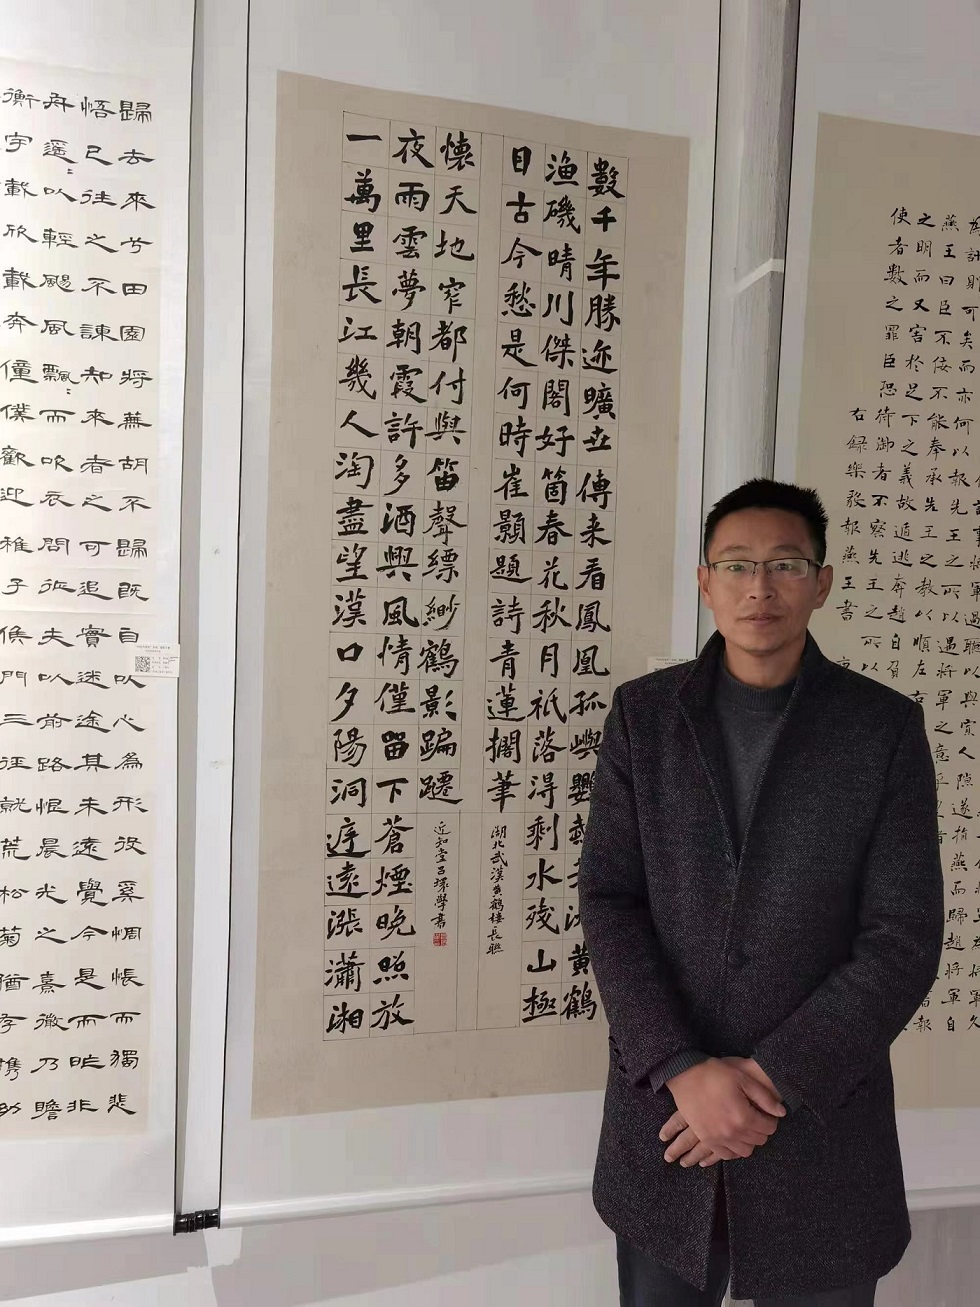 為計則可矣而亦何以報先王之所以遇將軍之意乎
燕王曰臣不佞不能奉承先王之教以順左右
之明而又害於足下之義故遁逃奔趙自負
使者數之罪臣恐侍御者不察先王之所以
右録樂毅報燕王書
數千年勝迹曠世傳来看鳳凰孤嶼鸚鵡芳洲黄鶴
漁磯晴川傑閣好箇春花秋月祇落淂剩水殘山極
目古今愁是何時崔顥題詩青蓮擱筆
湖北武漢黄鶴樓長聯
一萬里長江幾人淘盡望漢口夕陽洞庭遠漲瀟湘
夜雨雲夢朝霞許多酒興風情僅畱下蒼煙晚照放
懷天地窄都付與笛聲縹緲鶴影蹁躚
近知堂呂環學書
歸去來兮田園將蕪胡不歸既自以心為形役奚惆悵而獨悲
悟已往之不諫知來者之可追實迷途其未遠覺今是而昨非
舟遥〻以輕颺風飄〻而吹衣問征夫以前路恨晨光之熹微乃瞻
衡宇載欣載奔僮僕歡迎稚子候門三徑就荒松菊猶存携幼